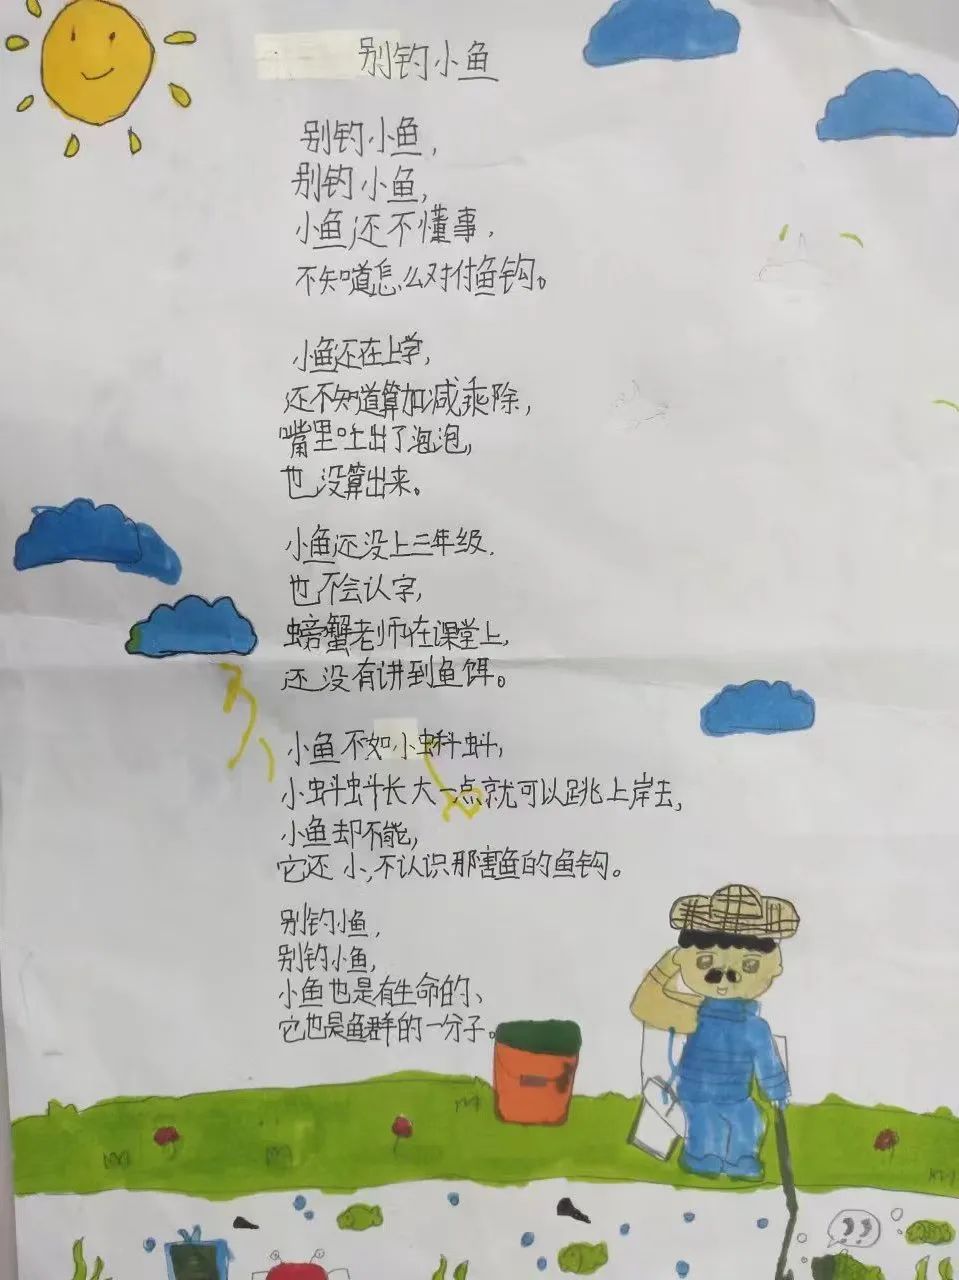 别钓小鱼
别钓小鱼，
别钓小鱼，
小鱼还不懂事，
不知道怎么对付鱼钩。
小鱼还在上学，
还不知道算加减乘除，
嘴里吐出了泡泡，
也没算出来。
小鱼还没上三年级，
也不会认字，
螃蟹老师在课堂上，
还没有讲到鱼饵。
小鱼不如小蝌蚪，
小蚪蚪长大一点就可以跳上岸去，
小鱼却不能，
它还小，不认识那害鱼的鱼钩。
别钓小鱼，
别钓小鱼，
小鱼也是有生命的、
它也是鱼群的一分子。